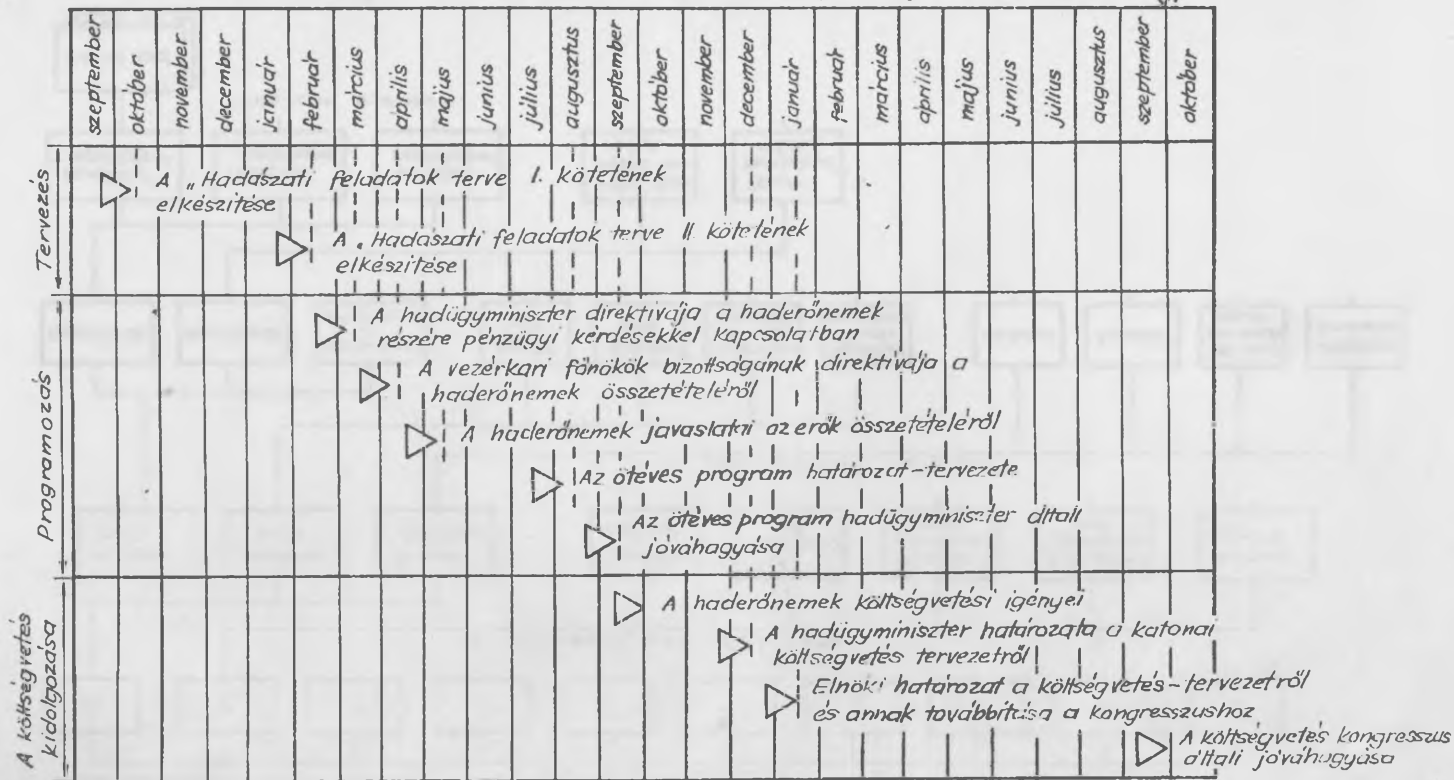 szeptember
október
november
december
január
február
március
április
május
junius
július
augusztus
szeptember
október
november
december
január
február
március
április
május
junius
július
augusztus
szeptember
október
Tervezés
A „Hadászati feladatok terve I. kötetének
elkészitése
A „Hadászati feladatok terve II kötetének
elkészitése
Programozás
A hadügyminiszter direktivája a haderőnemek
részére pénzügyi kérdésekkel kapcsolatban
A vezérkari főnökök bizottságának direktivája a
haderőnemek összetételéről
A haderőnemek javaslatai az erők összetételéről
Az ötéves program határozat-tervezete
Az ötéves program hadügyminiszter általi
jóváhagyása
A költségvetés
kidolgozása
A haderőnemek költségvetési igényei
A hadügyminiszter határozata a katonai
költségvetés tervezetről
Elnöki határozat a költségvetés-tervezetről
és annak továbbítása a kongresszushoz
A költségvetés kongresszus
általi jóváhagyása